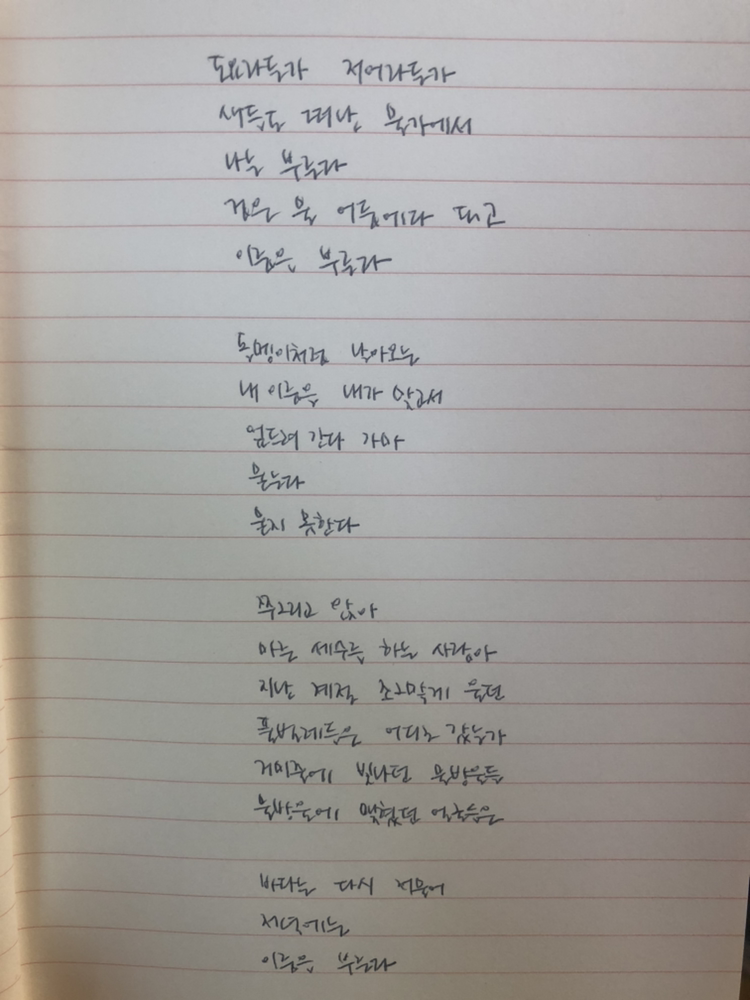 도요라든가 저어라든가
새들도 떠난 물가에서
나는 부른다
검은 물 어둠에다 대고
이름을 부른다
돌멩이처럼 날아오는
내 이름을 내가 맞고서
엎드려 간다 가마
묻는다
묻지 못한다
쭈그리고 앉아
마른 세수를 하는 사람아
지난 계절 조그맣게 울던
풀벌레들은 어디로 갔는가
거미줄에 빛나던 물방울들
물방울에 맺혔던 얼굴들은
바다는 다시 저물어
저녁에는
이름을 부른다